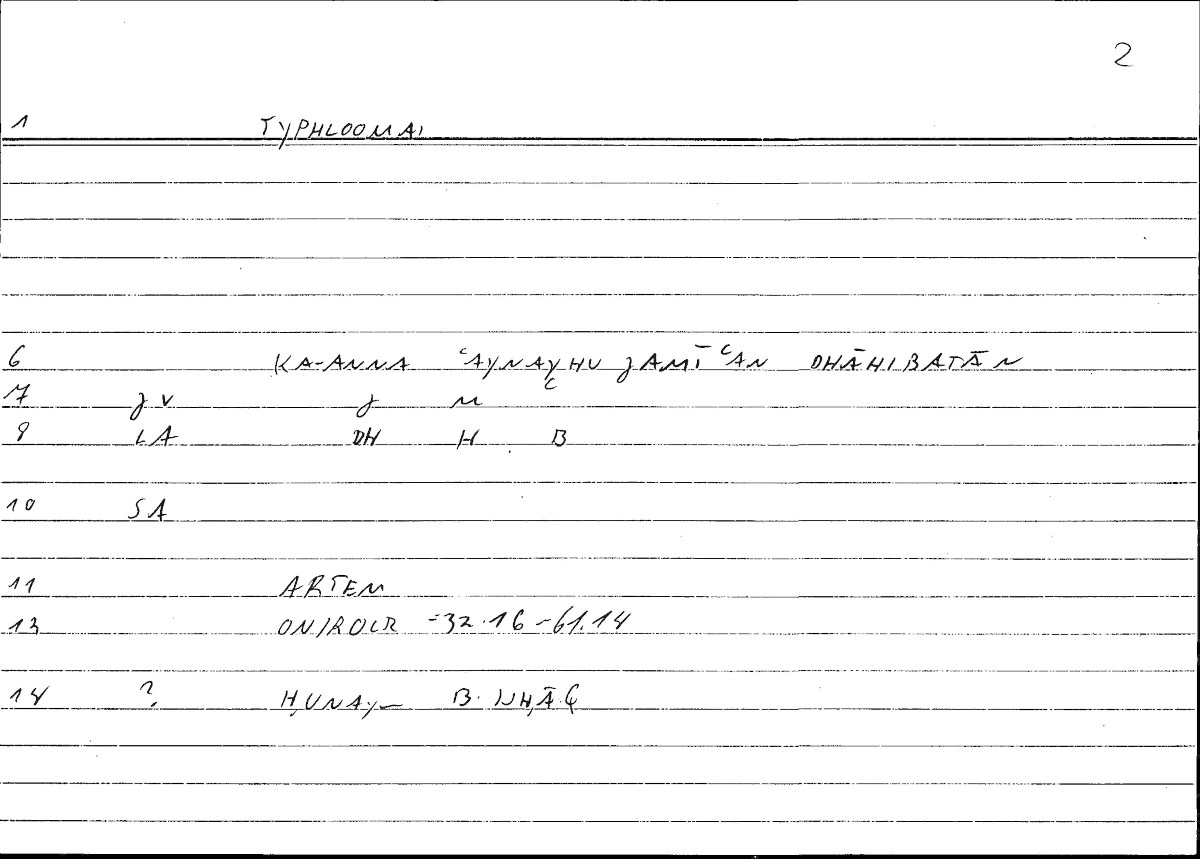 2
1 TYPHLOOMAI
6 KA-ANNA ʿAYNAYHU JAMĪʿAN DHĀHIBATĀN
7 JV J M ʿ
8 LA DH H B
10 SA
11 ARTEM
13 ONIROCR -32.16-61.14
14 ? ḤUNAY— B. ISḤĀQ